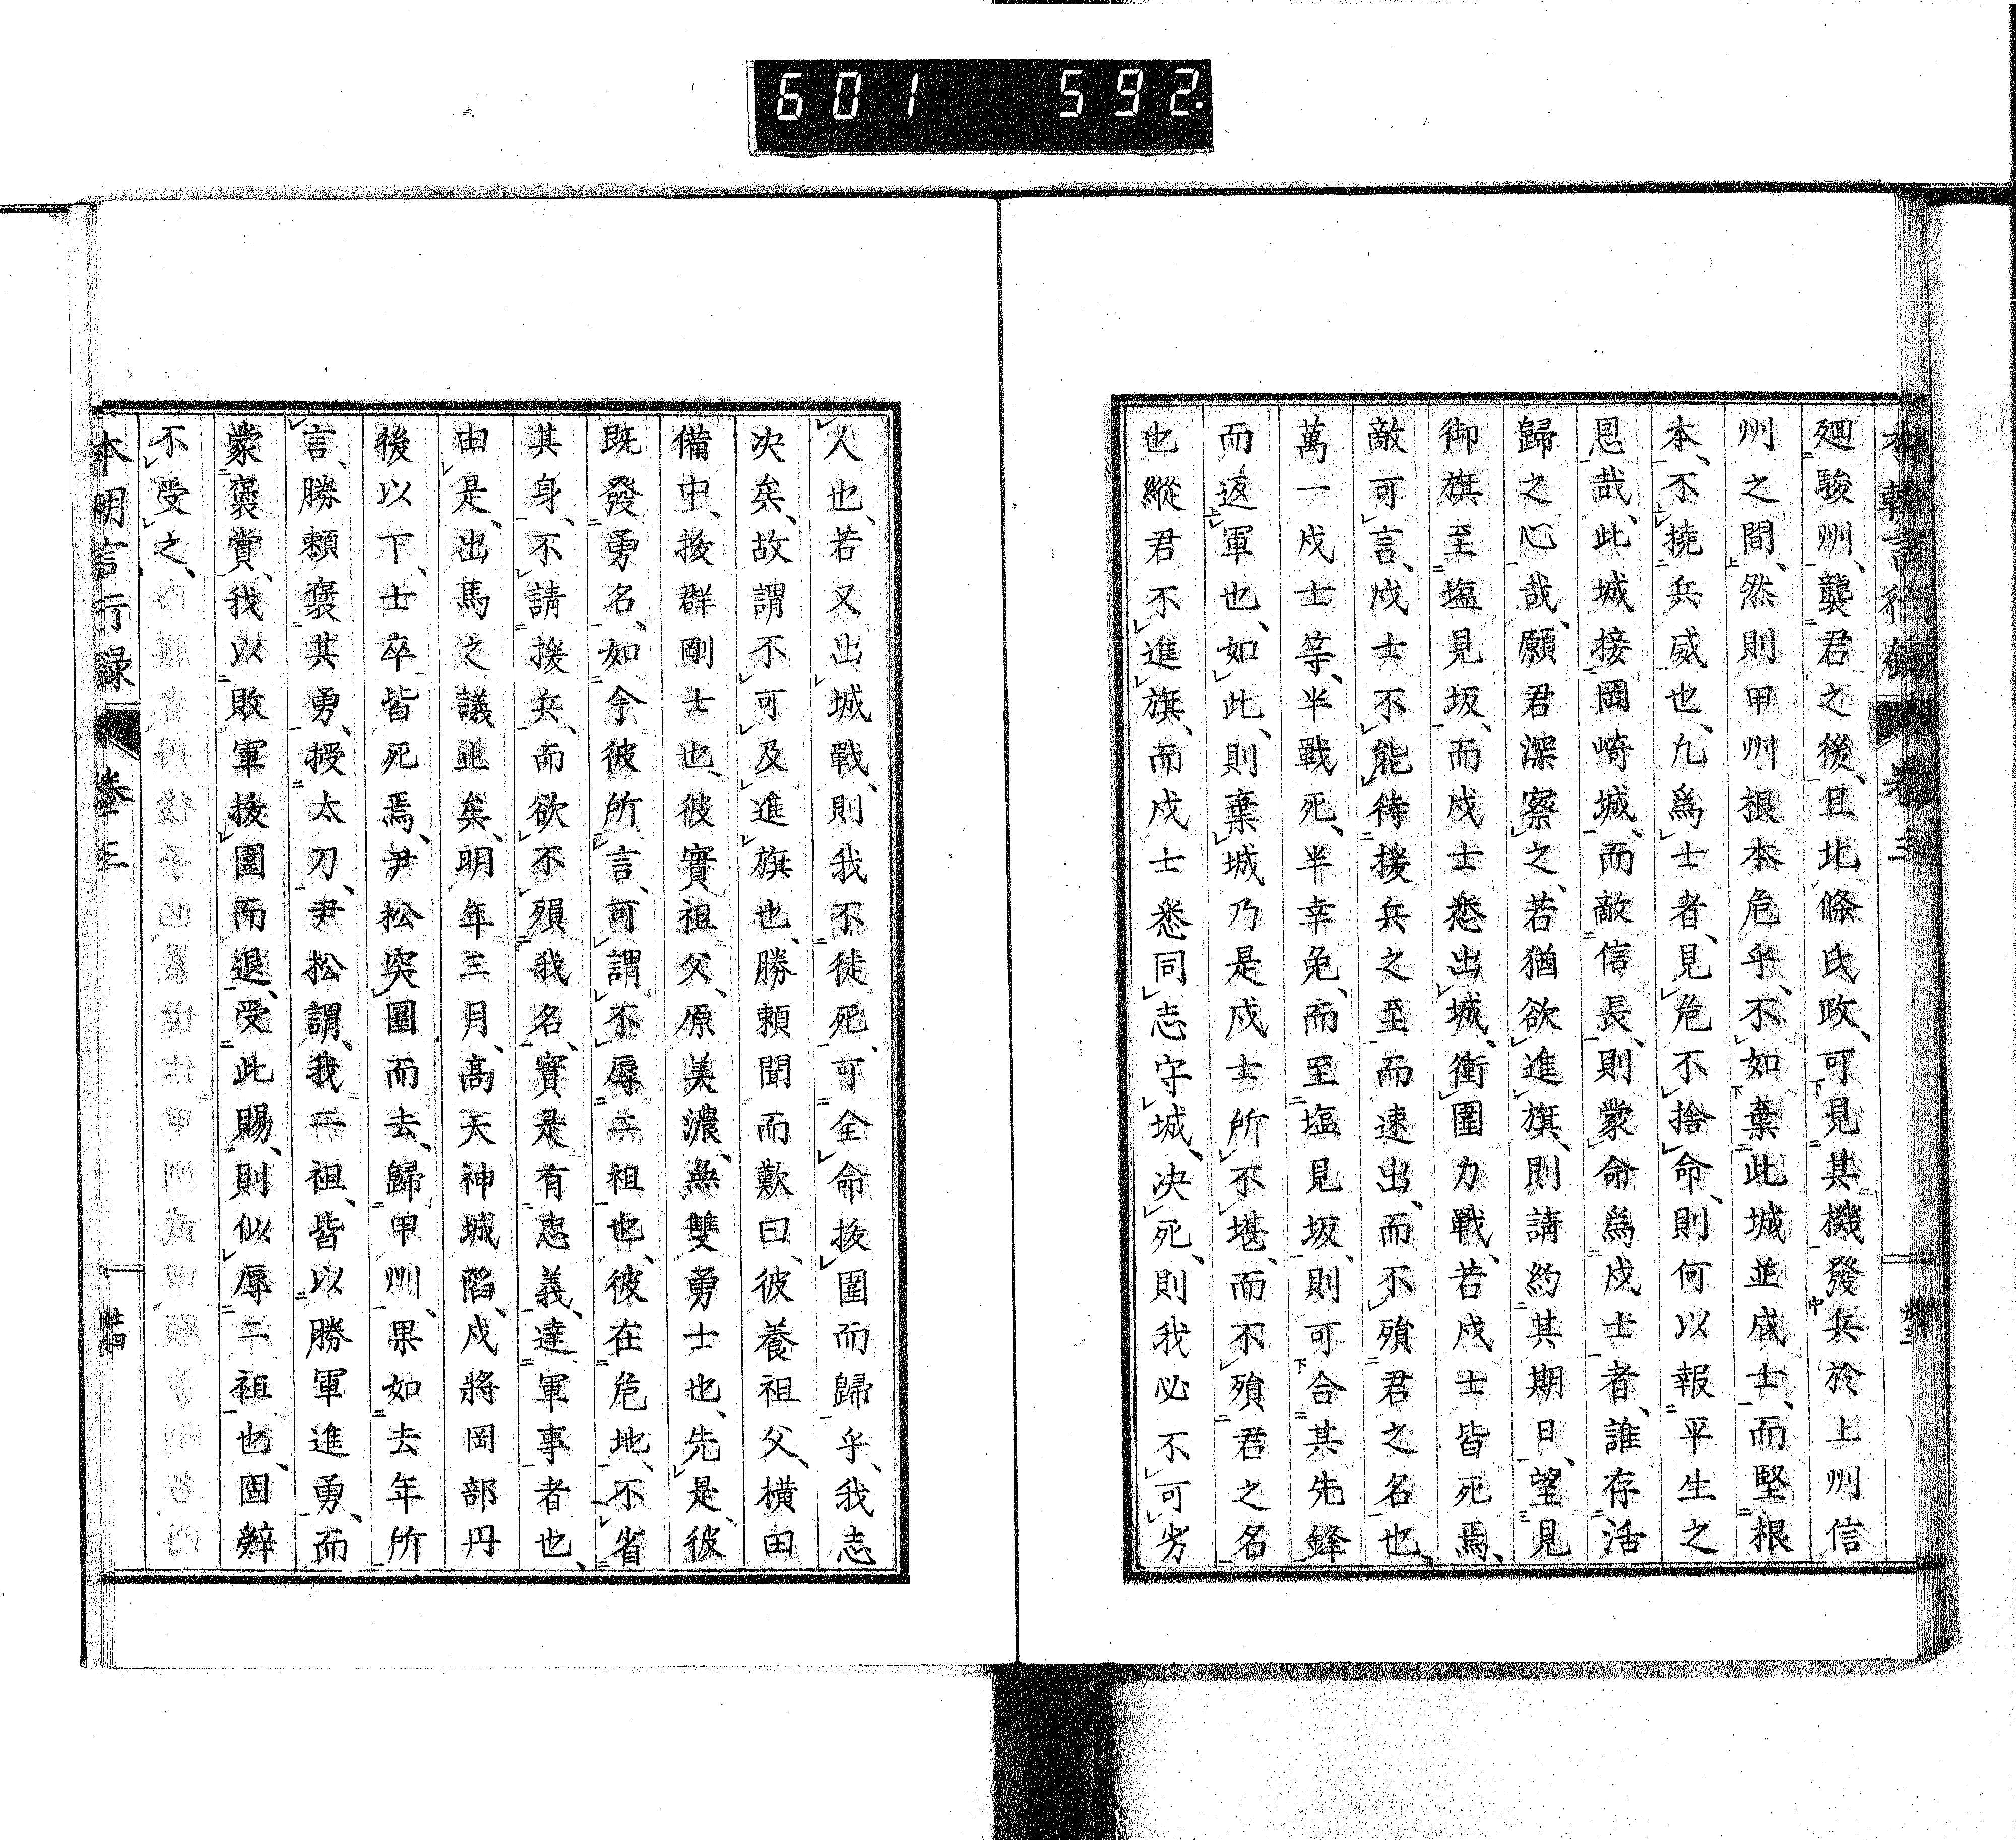 601 592.
廻駿州、襲君之後、且北條氏政、可見其機發兵於上州信
州之間、然則甲州根本危乎、不如棄此城並戍士、而堅根
本、不撓兵威也、凢爲士者、見危不捨命、則何以報平生之
恩哉、此城接岡崎城、而敵信長、則蒙命爲戍士者、誰存活
歸之心哉、願君深察之、若猶欲進旗、則請約其期日、望見
御旗至塩見坂、而戍士悉出城、衝圍力戰、若戍士皆死焉、
敵可言、戍士不能待援兵之至而速出、而不殞君之名也、
萬一戍士等、半戰死、半幸免、而至塩見坂、則可合其先鋒
而返軍也、如此、則棄城乃是戍士所不堪、而不殞君之名
也縱君不進旗、而戍士悉同志守城、决死、則我必不可劣
人也、若又出城戰、則我不徒死、可全命拔圍而歸乎、我志
决矣、故謂不可及進旗也、勝頼聞而歎曰、彼養祖父、橫田
備中、拔群剛士也、彼實祖父、原美濃、無雙勇士也、先是、彼
既發勇名、如今彼所言、可謂不辱二祖也、彼在危地、不省
其身、不請援兵、而欲不殞我名、實是有忠義、達軍事者也、
由是、出馬之議止矣、明年三月、高天神城陷、戍將岡部丹
後以下、士卒皆死焉、尹松突圍而去、歸甲州、果如去年所
言、勝頼褒其勇、授太刀、尹松謂、我二祖、皆以勝軍進勇、而
蒙褒賞、我以敗軍拔圍而退、受此賜、則似辱二祖也、固辭
不受之、
本朝言行録 卷三 廿四